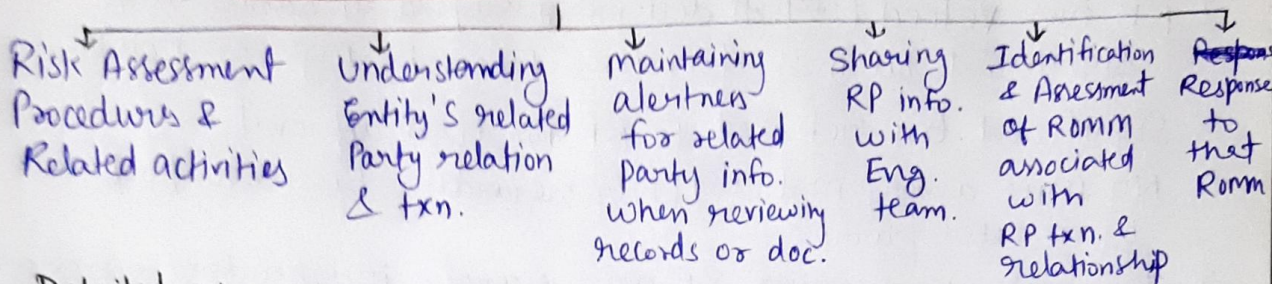 Risk Assessment
Procedures &
Related activities
Understanding
Entity's related
Party relation
& txn.
Maintaining
alertness
for related
party info.
when reviewing
records or doc.
Sharing
RP info.
with
Eng.
team.
Identification
& Assessment
of ROMM
associated
with
RP txn. &
relationship
Response
to
that
Romm